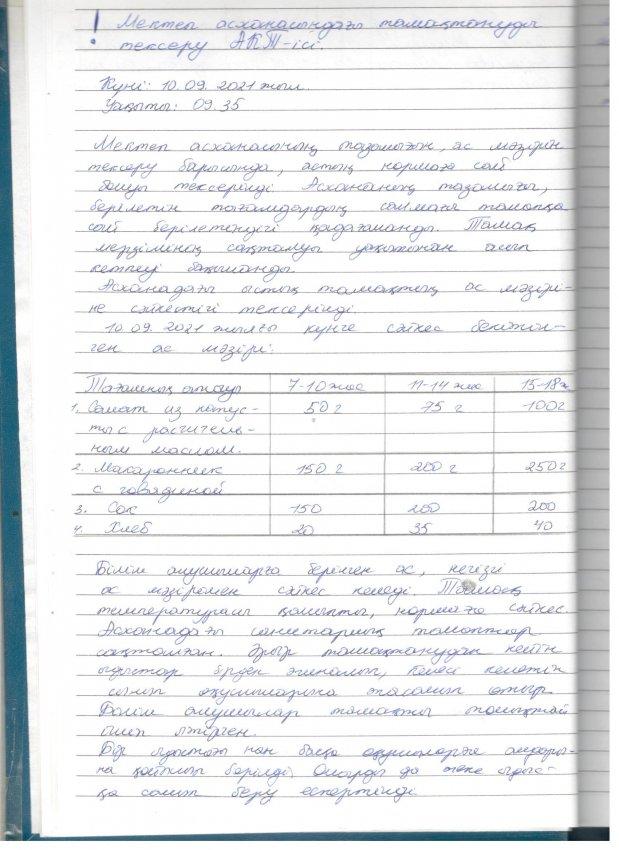 ! Мектеп асханасындағы тамақтануды
тексеру АКТ-ісі.
Күні: 10.09.2021 жыл.
Уақыты: 09.35
Мектеп асханасының тазалығын, ас мәзірін
тексеру барысында, астың нормаға сай
болуы тексерілді. Асхананың тазалығы,
берілетін тағамдардың салмағы талапқа
сай берілетіндігі қадағаланды. Тамақ
мерзімінің сақталуы уақытынан асып
кетпеуі бақыланды.
Асханадағы ыстық тамақтың ас мәзірі-
не сәйкестігі тексерілді.
10.09.2021 жылғы күнге сәйкес бекітіл-
ген ас мәзірі:
Тағамның атауы 7-10 жас 11-14 жас 15-18ж
1. Салат из капус- 50 г 75 г 100г
ты с расчитель-
ным маслом.
2. Макароннеек 150 г 200 г 250г
с говядиной
3. Сок 150 200 200
4. Хлеб 20 35 40
Білім алушыларға берілген ас, негізгі
ас мәзірімен сәйкес келеді. Тамақ
температурасы қалыпты, нормаға сәйкес.
Асханадағы санитарлық талаптар
сақталған. Әрбір тамақтанудан кейін
ыдыстар бірден жиналып, келесі келетін
сынып оқушыларына тазалап отыр.
Білім алушылар тамақты толықтай
ішіп жіпрген.
Бір ыдыстағы нан басқа оқушыларға алдары-
на қойылып берілді. Оларды да жеке ыдыс-
қа салып беру ескертілді.